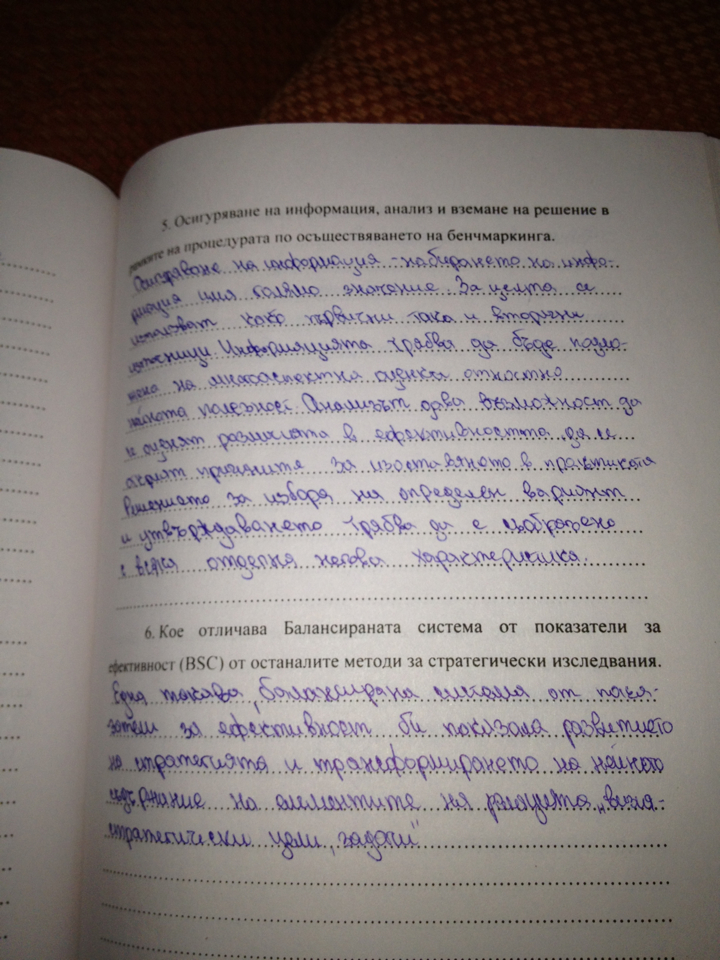 5. Осигуряване на информация, анализ и вземане на решение в
рамките на процедурата по осъществяването на бенчмаркинга.
Осигуряване на информация - набирането на инфо-
рмация има голямо значение. За целта се
използват както първични така и вторични
източници. Информацията трябва да бъде подло-
жена на многоаспектна оценка относно
нейната полезност. Анализът дава възможност да
се оценят различията в ефективността, да се
открият причините за изоставането в практиката
Решението за избора на определен вариант
и утвърждаването трябва да е съобразено
с всяка отделна негова характеристика.
6. Кое отличава Балансираната система от показатели за
ефективност (BSC) от останалите методи за стратегически изследвания.
Една такава, балансирана система от пока-
затели за ефективност би показала развитието
на стратегията и трансформирането на нейното
съдържание на елементите на
стратегически цели, задачи"